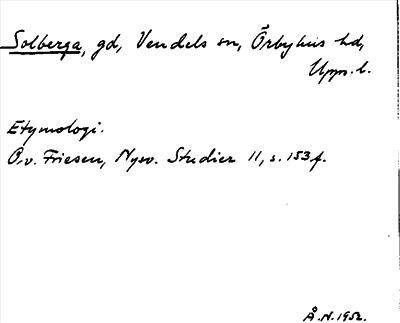 Solberga, gd, Vendels sn, Örbyhus hd,
Upps. l.
Etymologi.
O.v. Friesen, Nysv. Studier 11, s. 153 f.
Å.N. 1952.